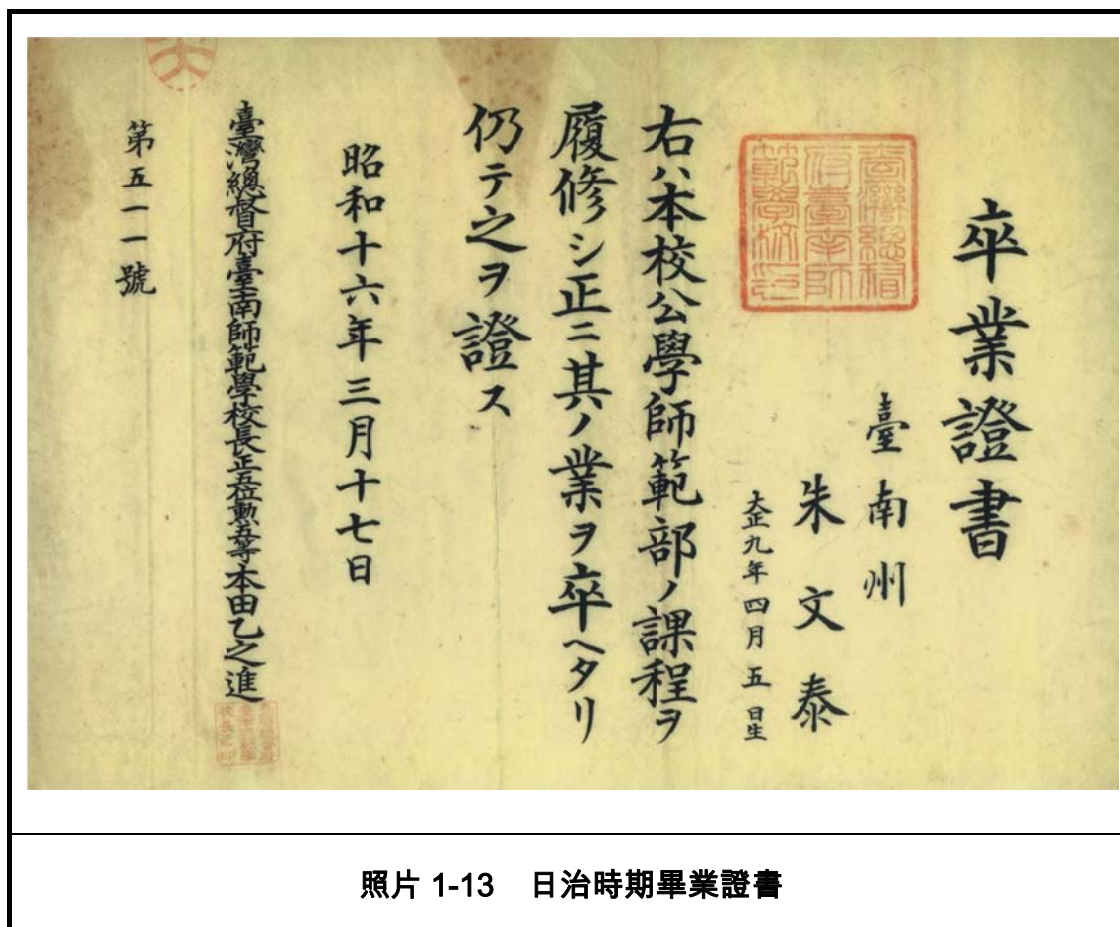 卒業證書
臺南州
朱文泰
大正九年四月五日生
臺灣總督府臺南師範學校印
右ハ本校公學師範部ノ課程ヲ
履修シ正ニ其ノ業ヲ卒ヘタリ
仍テ之ヲ證ス
昭和十六年三月十七日
臺灣總督府臺南師範學校長正五位勳五等本田乙之進
第五一一號
照片 1-13 日治時期畢業證書